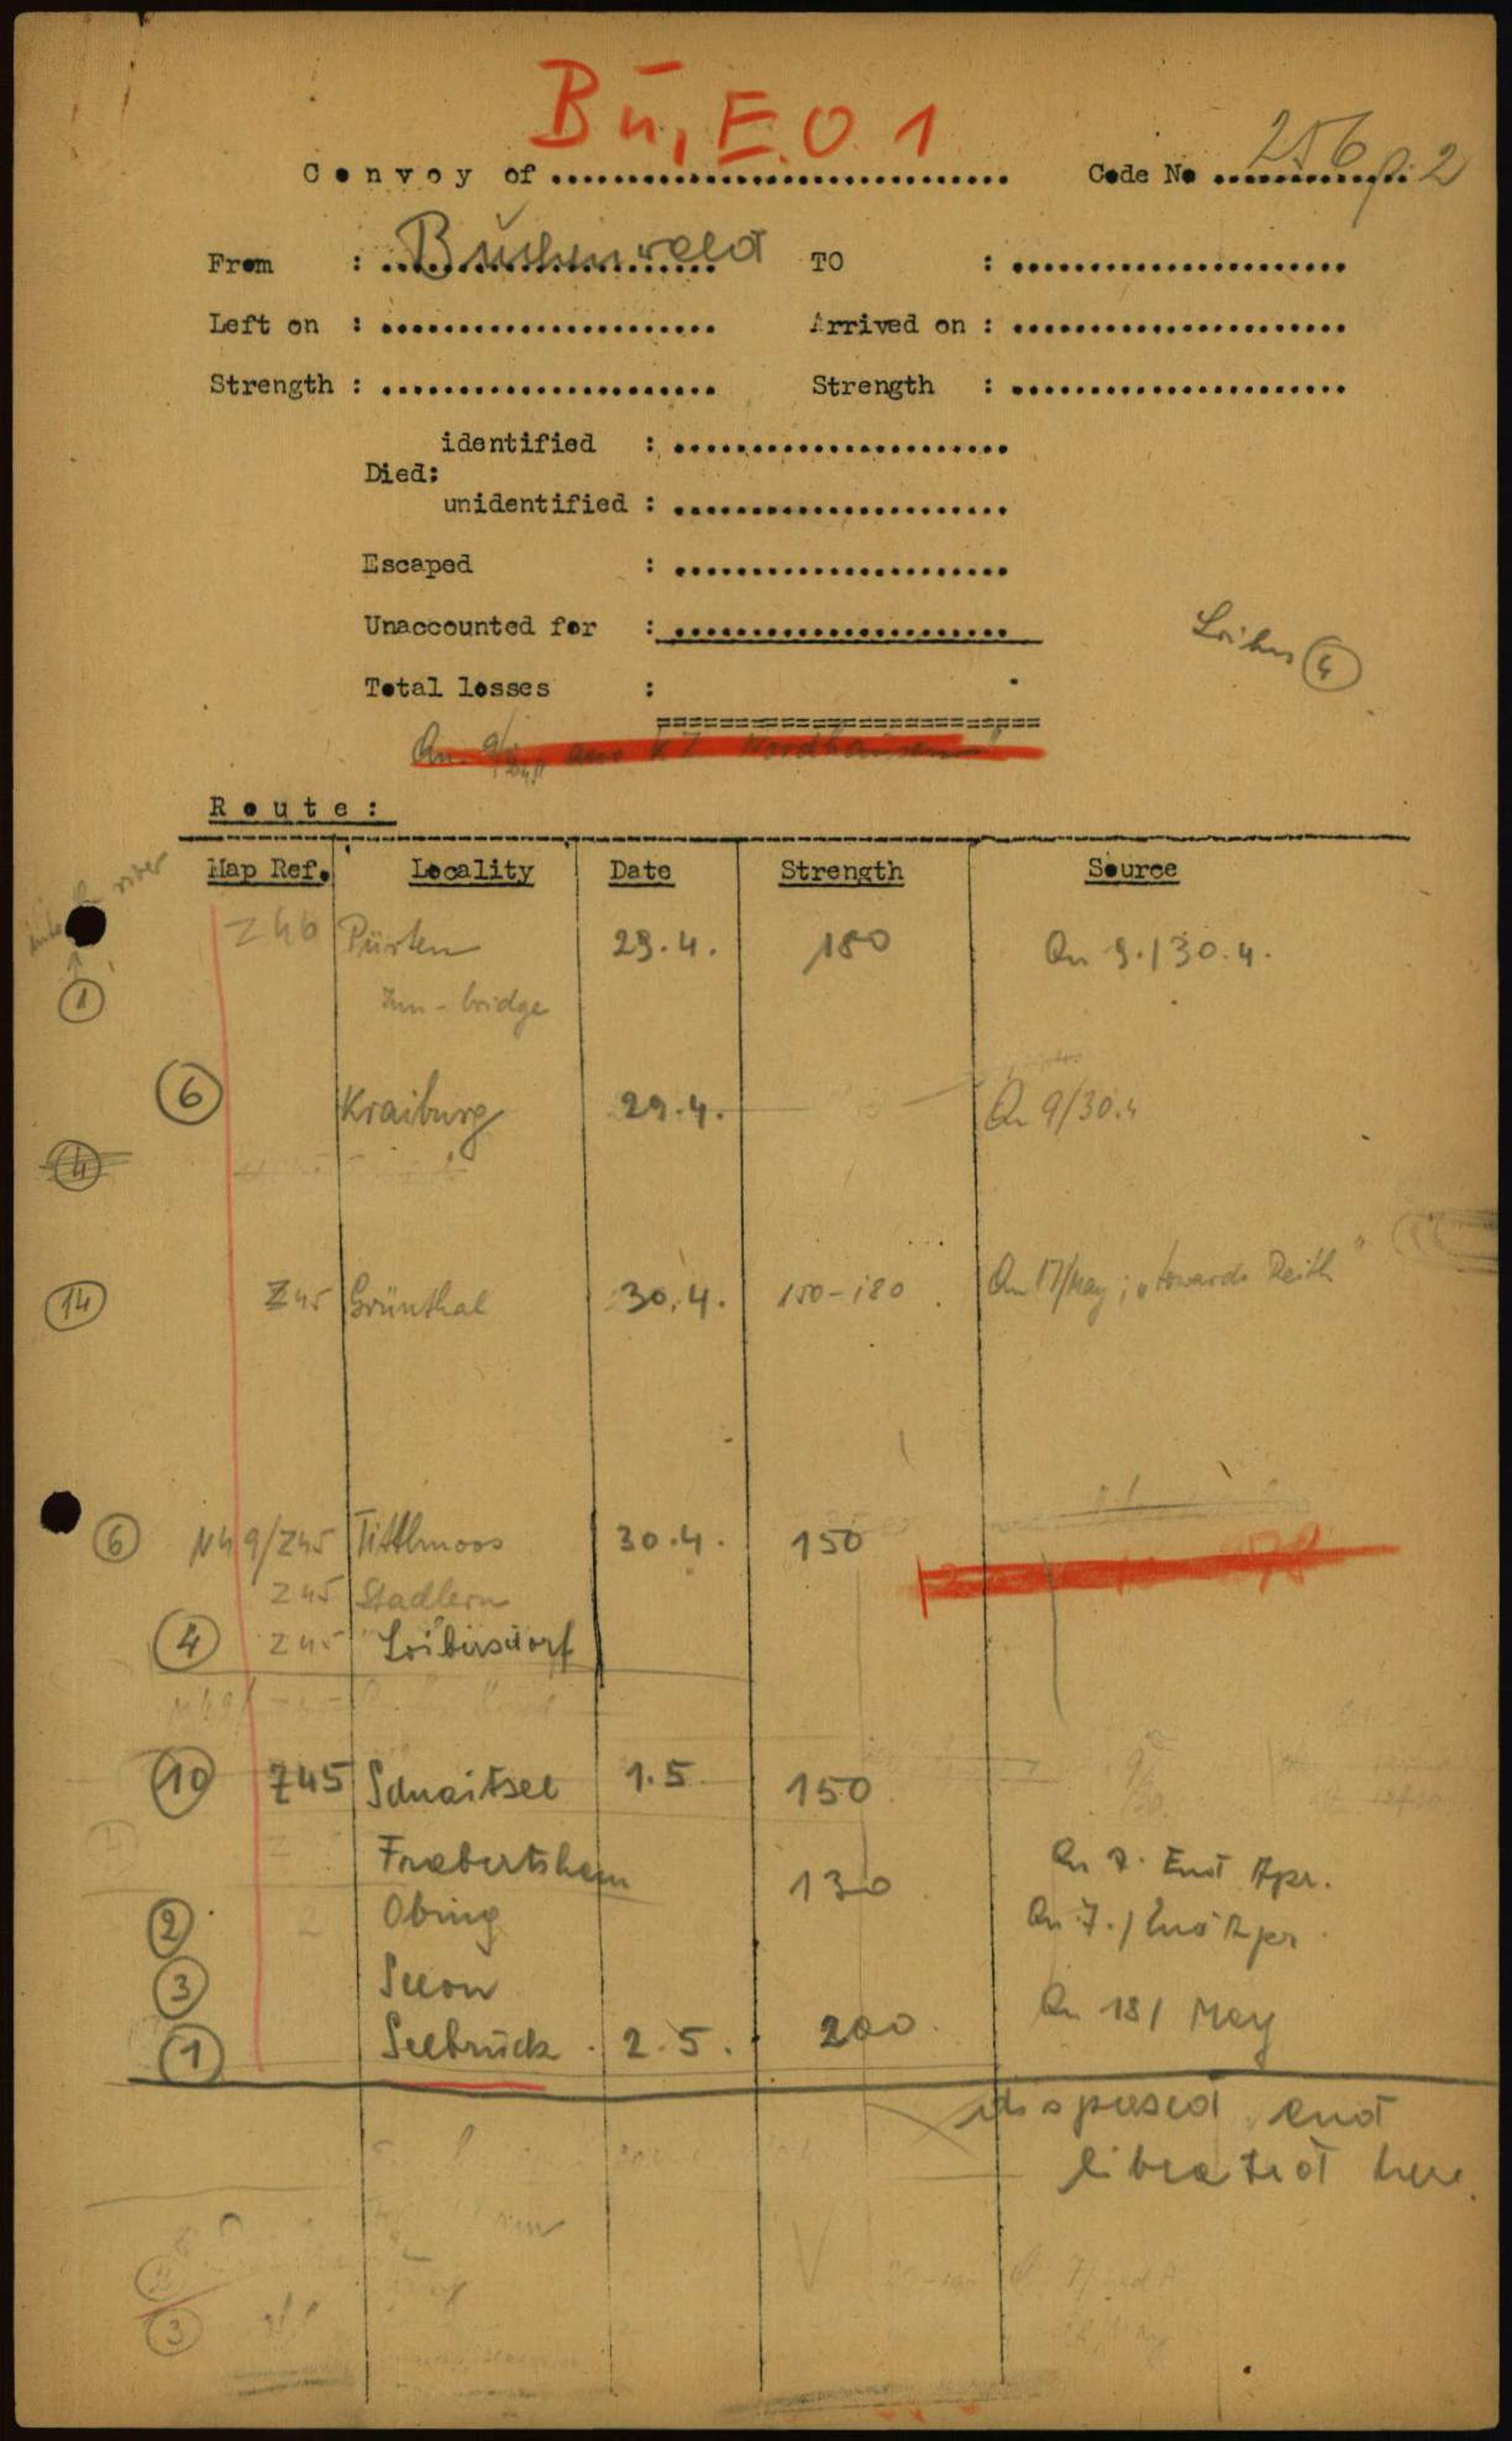 Bu, E. O. 1
Convoy of .............................. Code No ............. 256 p. 2
From : Buchenwald TO : ......................
Left on : ...................... Arrived on : ......................
Strength : ...................... Strength : ......................
identified : ......................
Died:
unidentified : ......................
Escaped : ......................
Unaccounted for : ......................
Total losses :
An aus KZ Nordhausen
Route:
Map Ref. Locality Date Strength Source
river
Z46 Pürten 29.4. 180 Qu 9./30.4.
1 Inn-bridge
6 Kraiburg 29.4. Qu 9/30.4
14 Z45 Grünthal 30.4. 150-180 Qu 17/May; „towards Reith"
6 N49/Z45 Tittlmoos 30.4. 150
Z45 Stadlern
4 Z45 Loibersdorf
10 Z45 Schnaitsee 1.5. 150
Frabertsham 130 Qu 7. End Apr.
2 Obing Qu 7./End Apr
3 Seeon
1 Seebruck 2.5. 200. Qu 18/ May
dispersed and
liberated here.
3